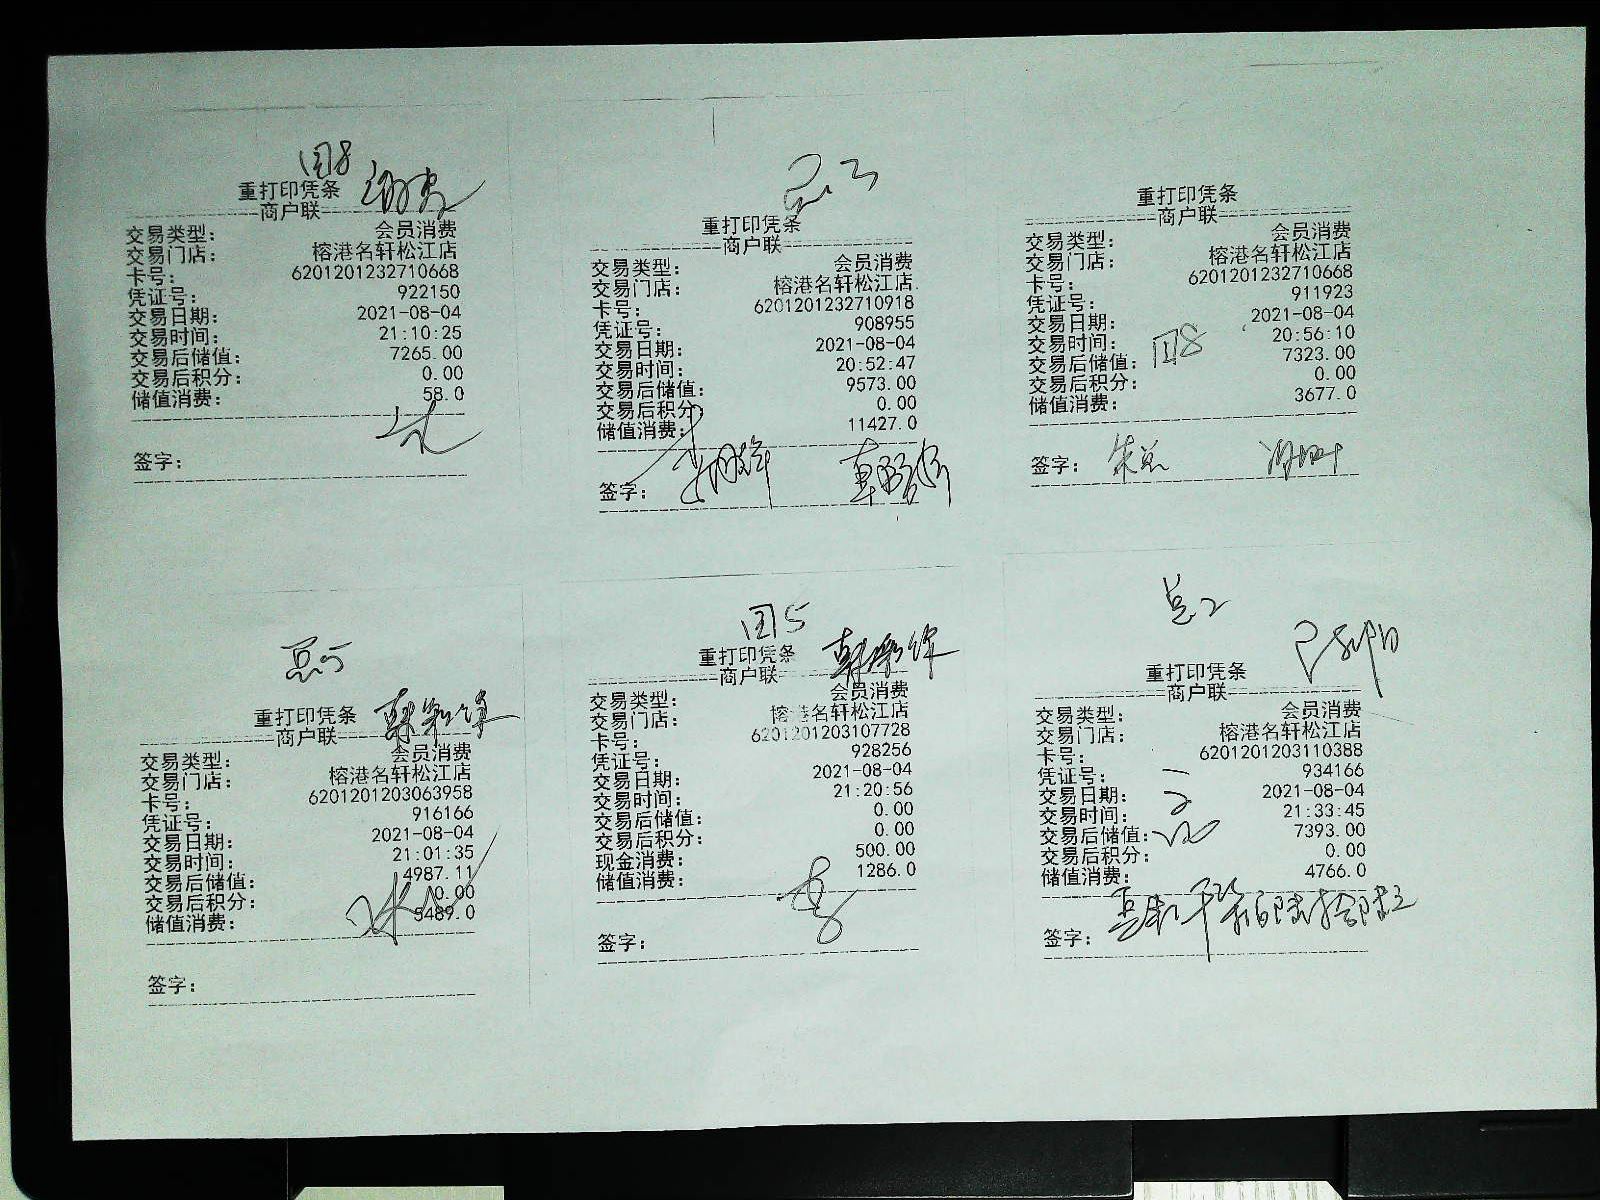 团8
重打印凭条
商户联
交易类型： 会员消费
交易门店： 榕港名轩松江店
卡号： 6201201232710668
凭证号： 922150
交易日期： 2021-08-04
交易时间： 21:10:25
交易后储值： 7265.00
交易后积分： 0.00
储值消费： 58.0
签字：
重打印凭条
商户联
交易类型： 会员消费
交易门店： 榕港名轩松江店
卡号： 6201201232710918
凭证号： 908955
交易日期： 2021-08-04
交易时间： 20:52:47
交易后储值： 9573.00
交易后积分： 0.00
储值消费： 11427.0
签字：
重打印凭条
商户联
交易类型： 会员消费
交易门店： 榕港名轩松江店
卡号： 6201201232710668
凭证号： 911923
交易日期： 2021-08-04
交易时间： 20:56:10
团8
交易后储值： 7323.00
交易后积分： 0.00
储值消费： 3677.0
签字： 朱总
重打印凭条
商户联
交易类型： 会员消费
交易门店： 榕港名轩松江店
卡号： 6201201203063958
凭证号： 916166
交易日期： 2021-08-04
交易时间： 21:01:35
交易后储值： 4987.11
交易后积分： 0.00
储值消费： 5489.0
签字：
团5
重打印凭条
商户联
交易类型： 会员消费
交易门店： 榕港名轩松江店
卡号： 6201201203107728
凭证号： 928256
交易日期： 2021-08-04
交易时间： 21:20:56
交易后储值： 0.00
交易后积分： 0.00
现金消费： 500.00
储值消费： 1286.0
签字：
重打印凭条
商户联
交易类型： 会员消费
交易门店： 榕港名轩松江店
卡号： 6201201203110388
凭证号： 934166
交易日期： 2021-08-04
交易时间： 21:33:45
交易后储值： 7393.00
交易后积分： 0.00
储值消费： 4766.0
签字：